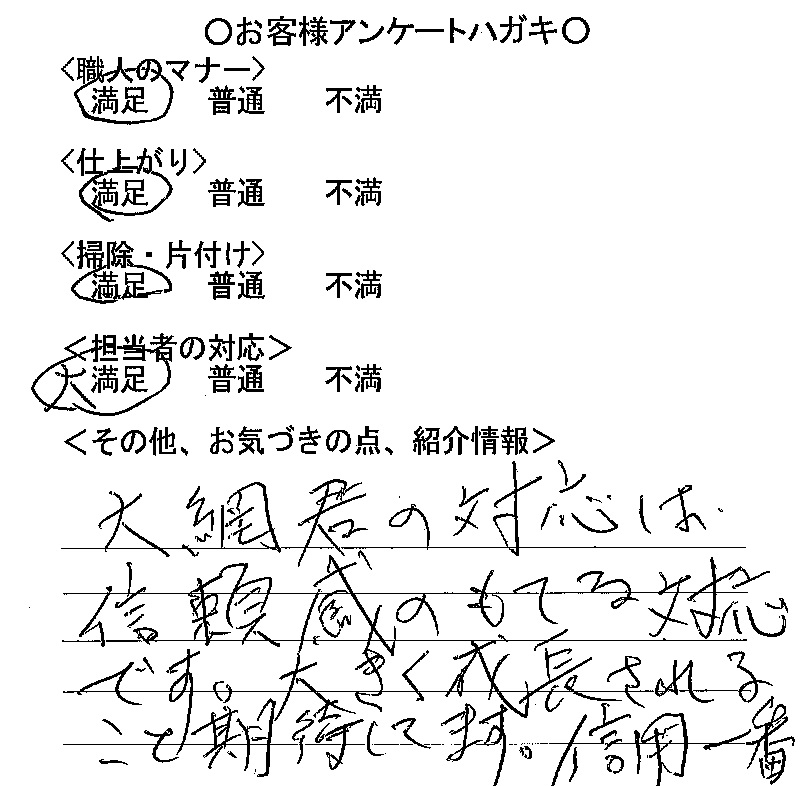 ○お客様アンケートハガキ○
<職人のマナー>
満足 普通 不満
<仕上がり>
満足 普通 不満
<掃除・片付け>
満足 普通 不満
<担当者の対応>
大満足 普通 不満
<その他、お気づきの点、紹介情報>
大網君の対応は
信頼感のもてる対応
です。大きく成長される
こと期待してます。信用一番